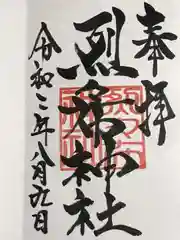 奉拝
烈々布神社
令和二年八月九日